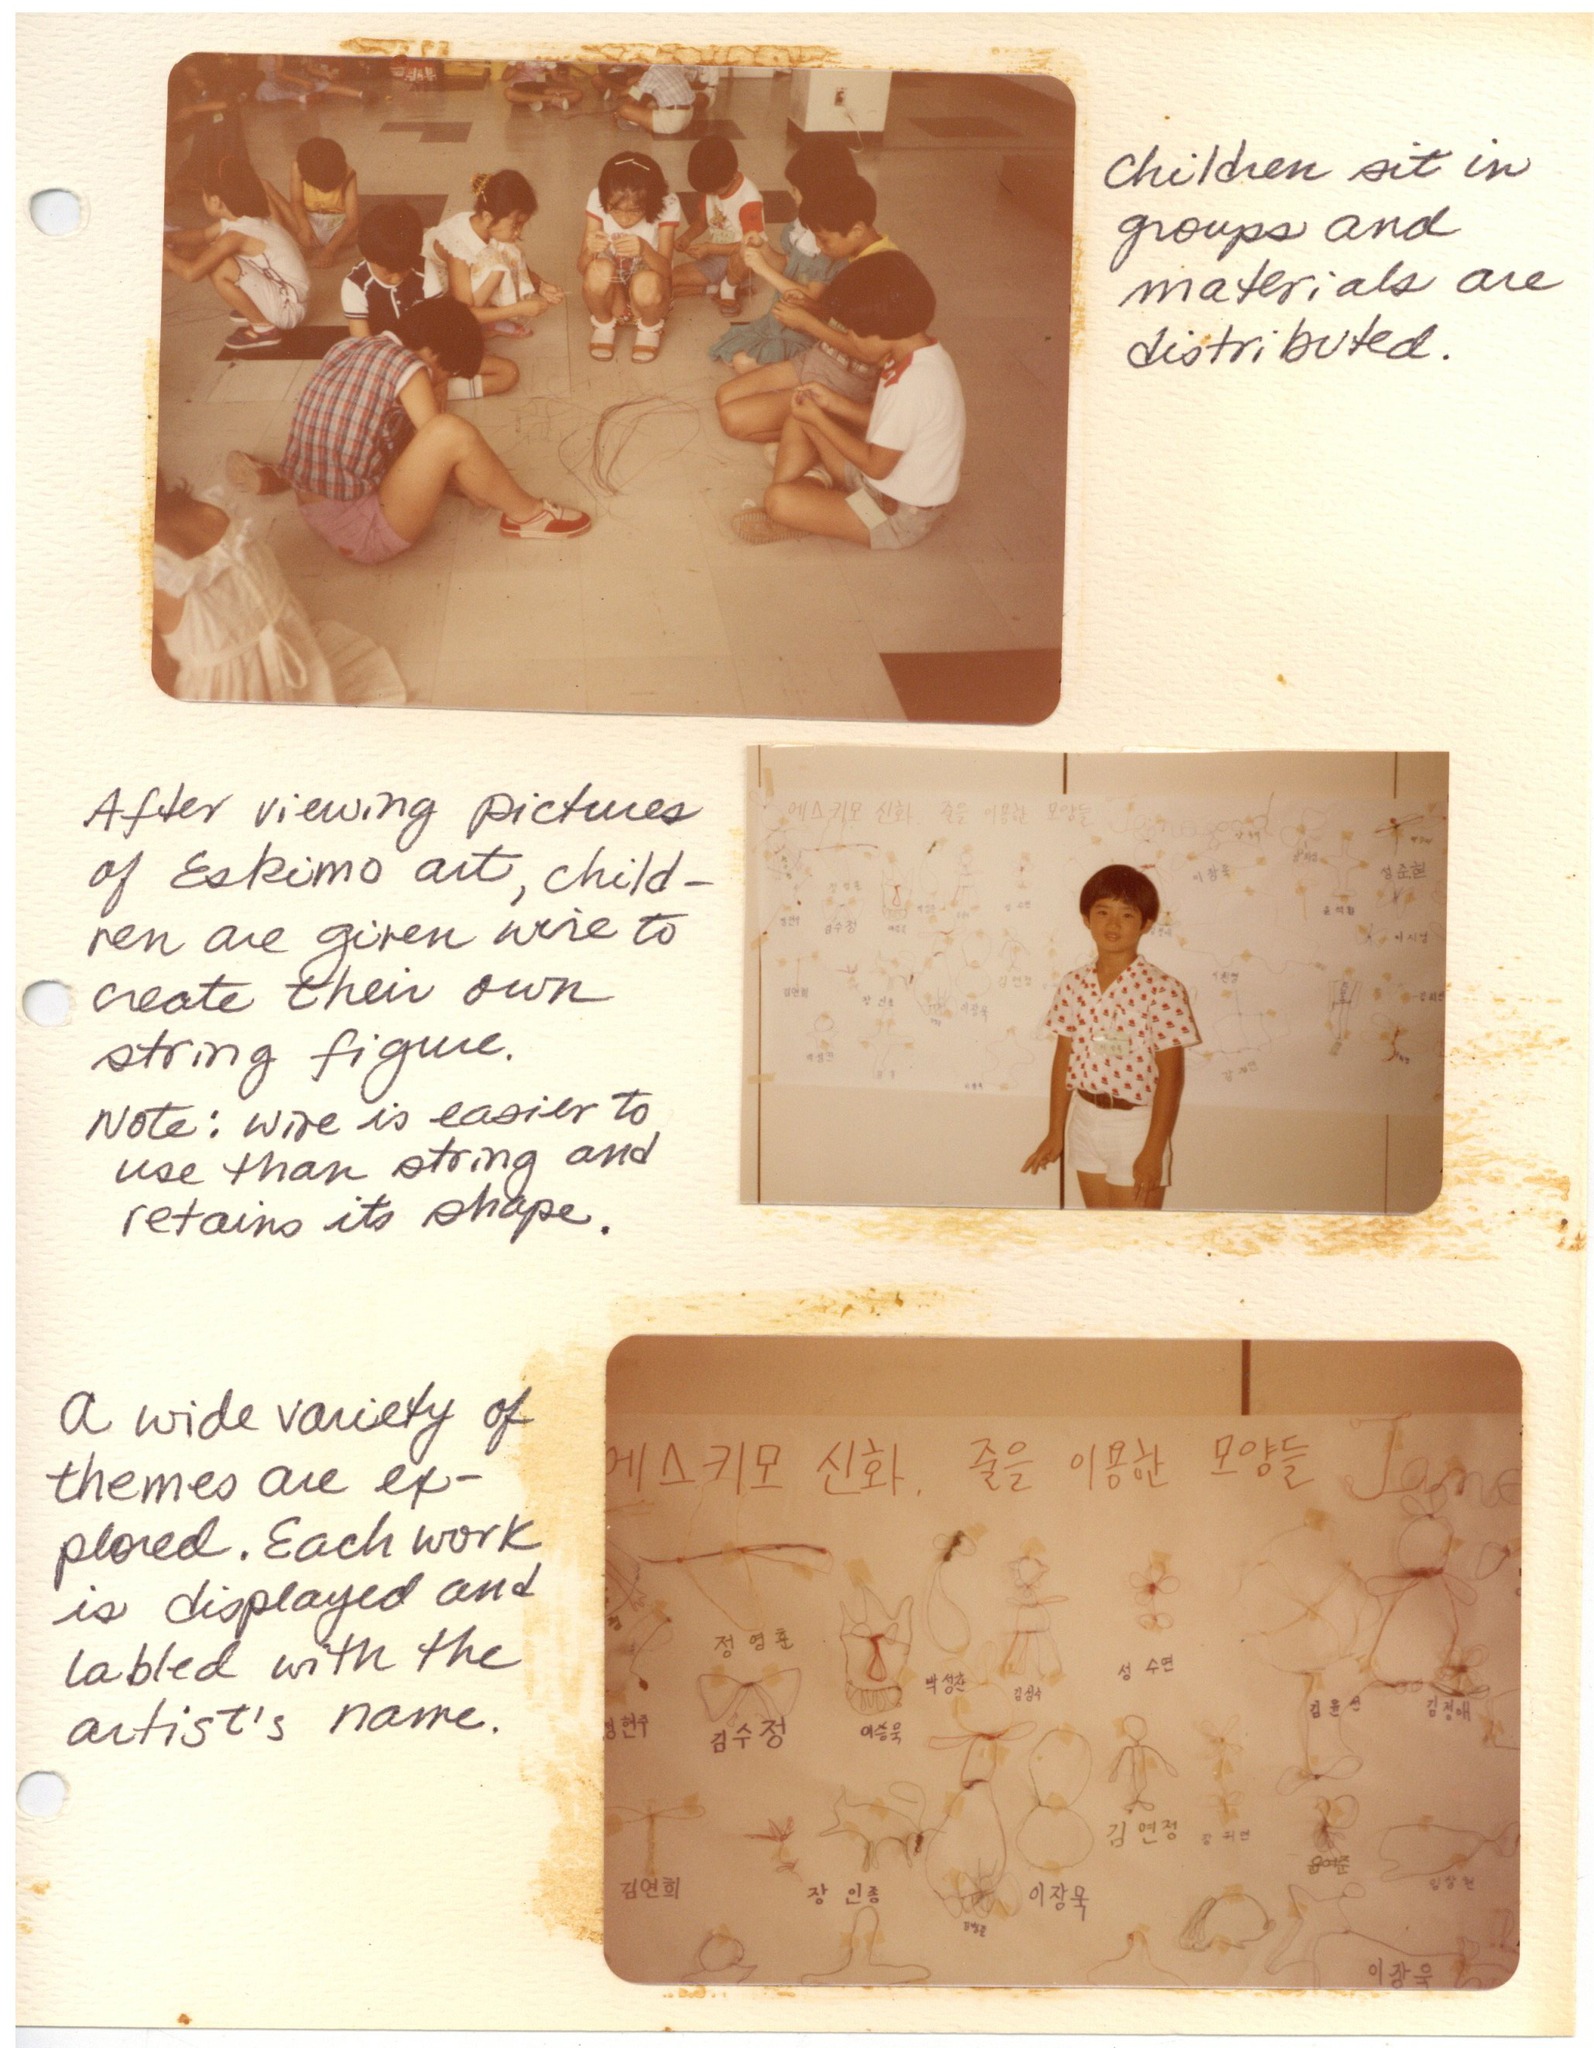 Children sit in
groups and
materials are
distributed.
After viewing pictures
of Eskimo art, child-
ren are given wire to
create their own
string figure.
Note: wire is easier to
use than string and
retains its shape.
에스키모 신화. 줄을 이용한 모양들
성준현
김수정
A wide variety of
themes are ex-
plored. Each work
is displayed and
labled with the
artist's name.
에스키모 신화. 줄을 이용한 모양들 Jane
정영훈
박성찬
김성수
성수연
김수정
이승욱
김윤선
김정애
김연정
김연희
장인종
이장묵
이장욱